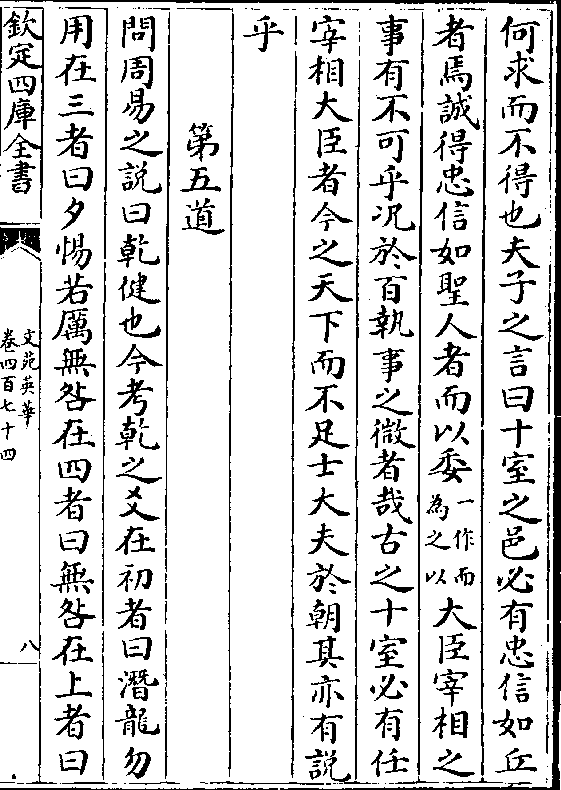 何求而不得也夫子之言曰十室之邑必有忠信如丘
者焉誠得忠信如聖人者而以委一作而為之以大臣宰相之
事有不可乎况於百執事之微者哉古之十室必有任
宰相大臣者今之天下而不足士大夫於朝其亦有説
乎
第五道
問周易之說曰乾健也今考乾之爻在初者曰潛龍勿
用在三者曰夕惕若厲無咎在四者曰無咎在上者曰
欽定四庫全書
文苑英華
卷四百七十四
八